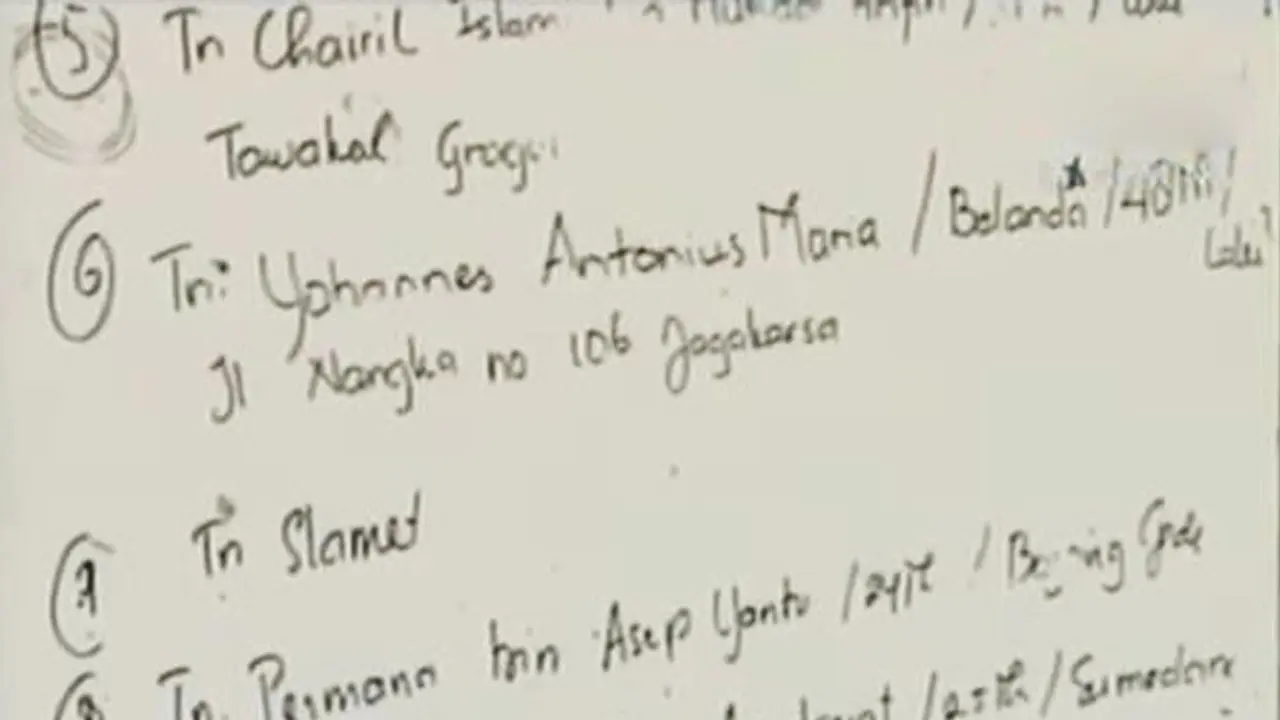 5 Tn Chairil Islam
Tawakal Grogo
6 Tn: Yohannes Antonius Maria / Belanda / 48 th /
Laki
Jl Nangka no 106 Jagakarsa
7 Tn Slamet
8 Tn. Permana bin Asep Yanto / 24 th / Gede
/ 25 th / Sumedang